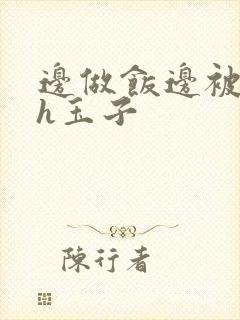 邊做飯邊被
h玉子
陳行者